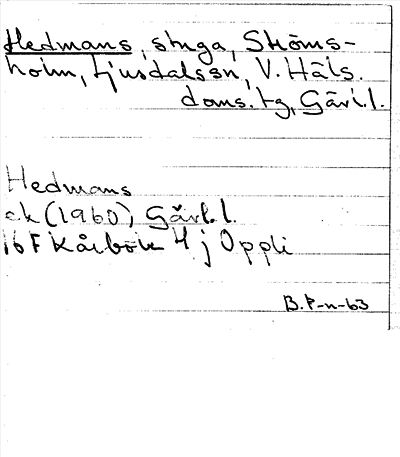 Hedmans, stuga, Ströms-
holm, Ljusdalssn, V. Häls.
doms. tg, Gävl. l.
Hedmans
ek (1960) Gävl. l.
16 F Kårböle 4 j Oppli
B.P-n-63